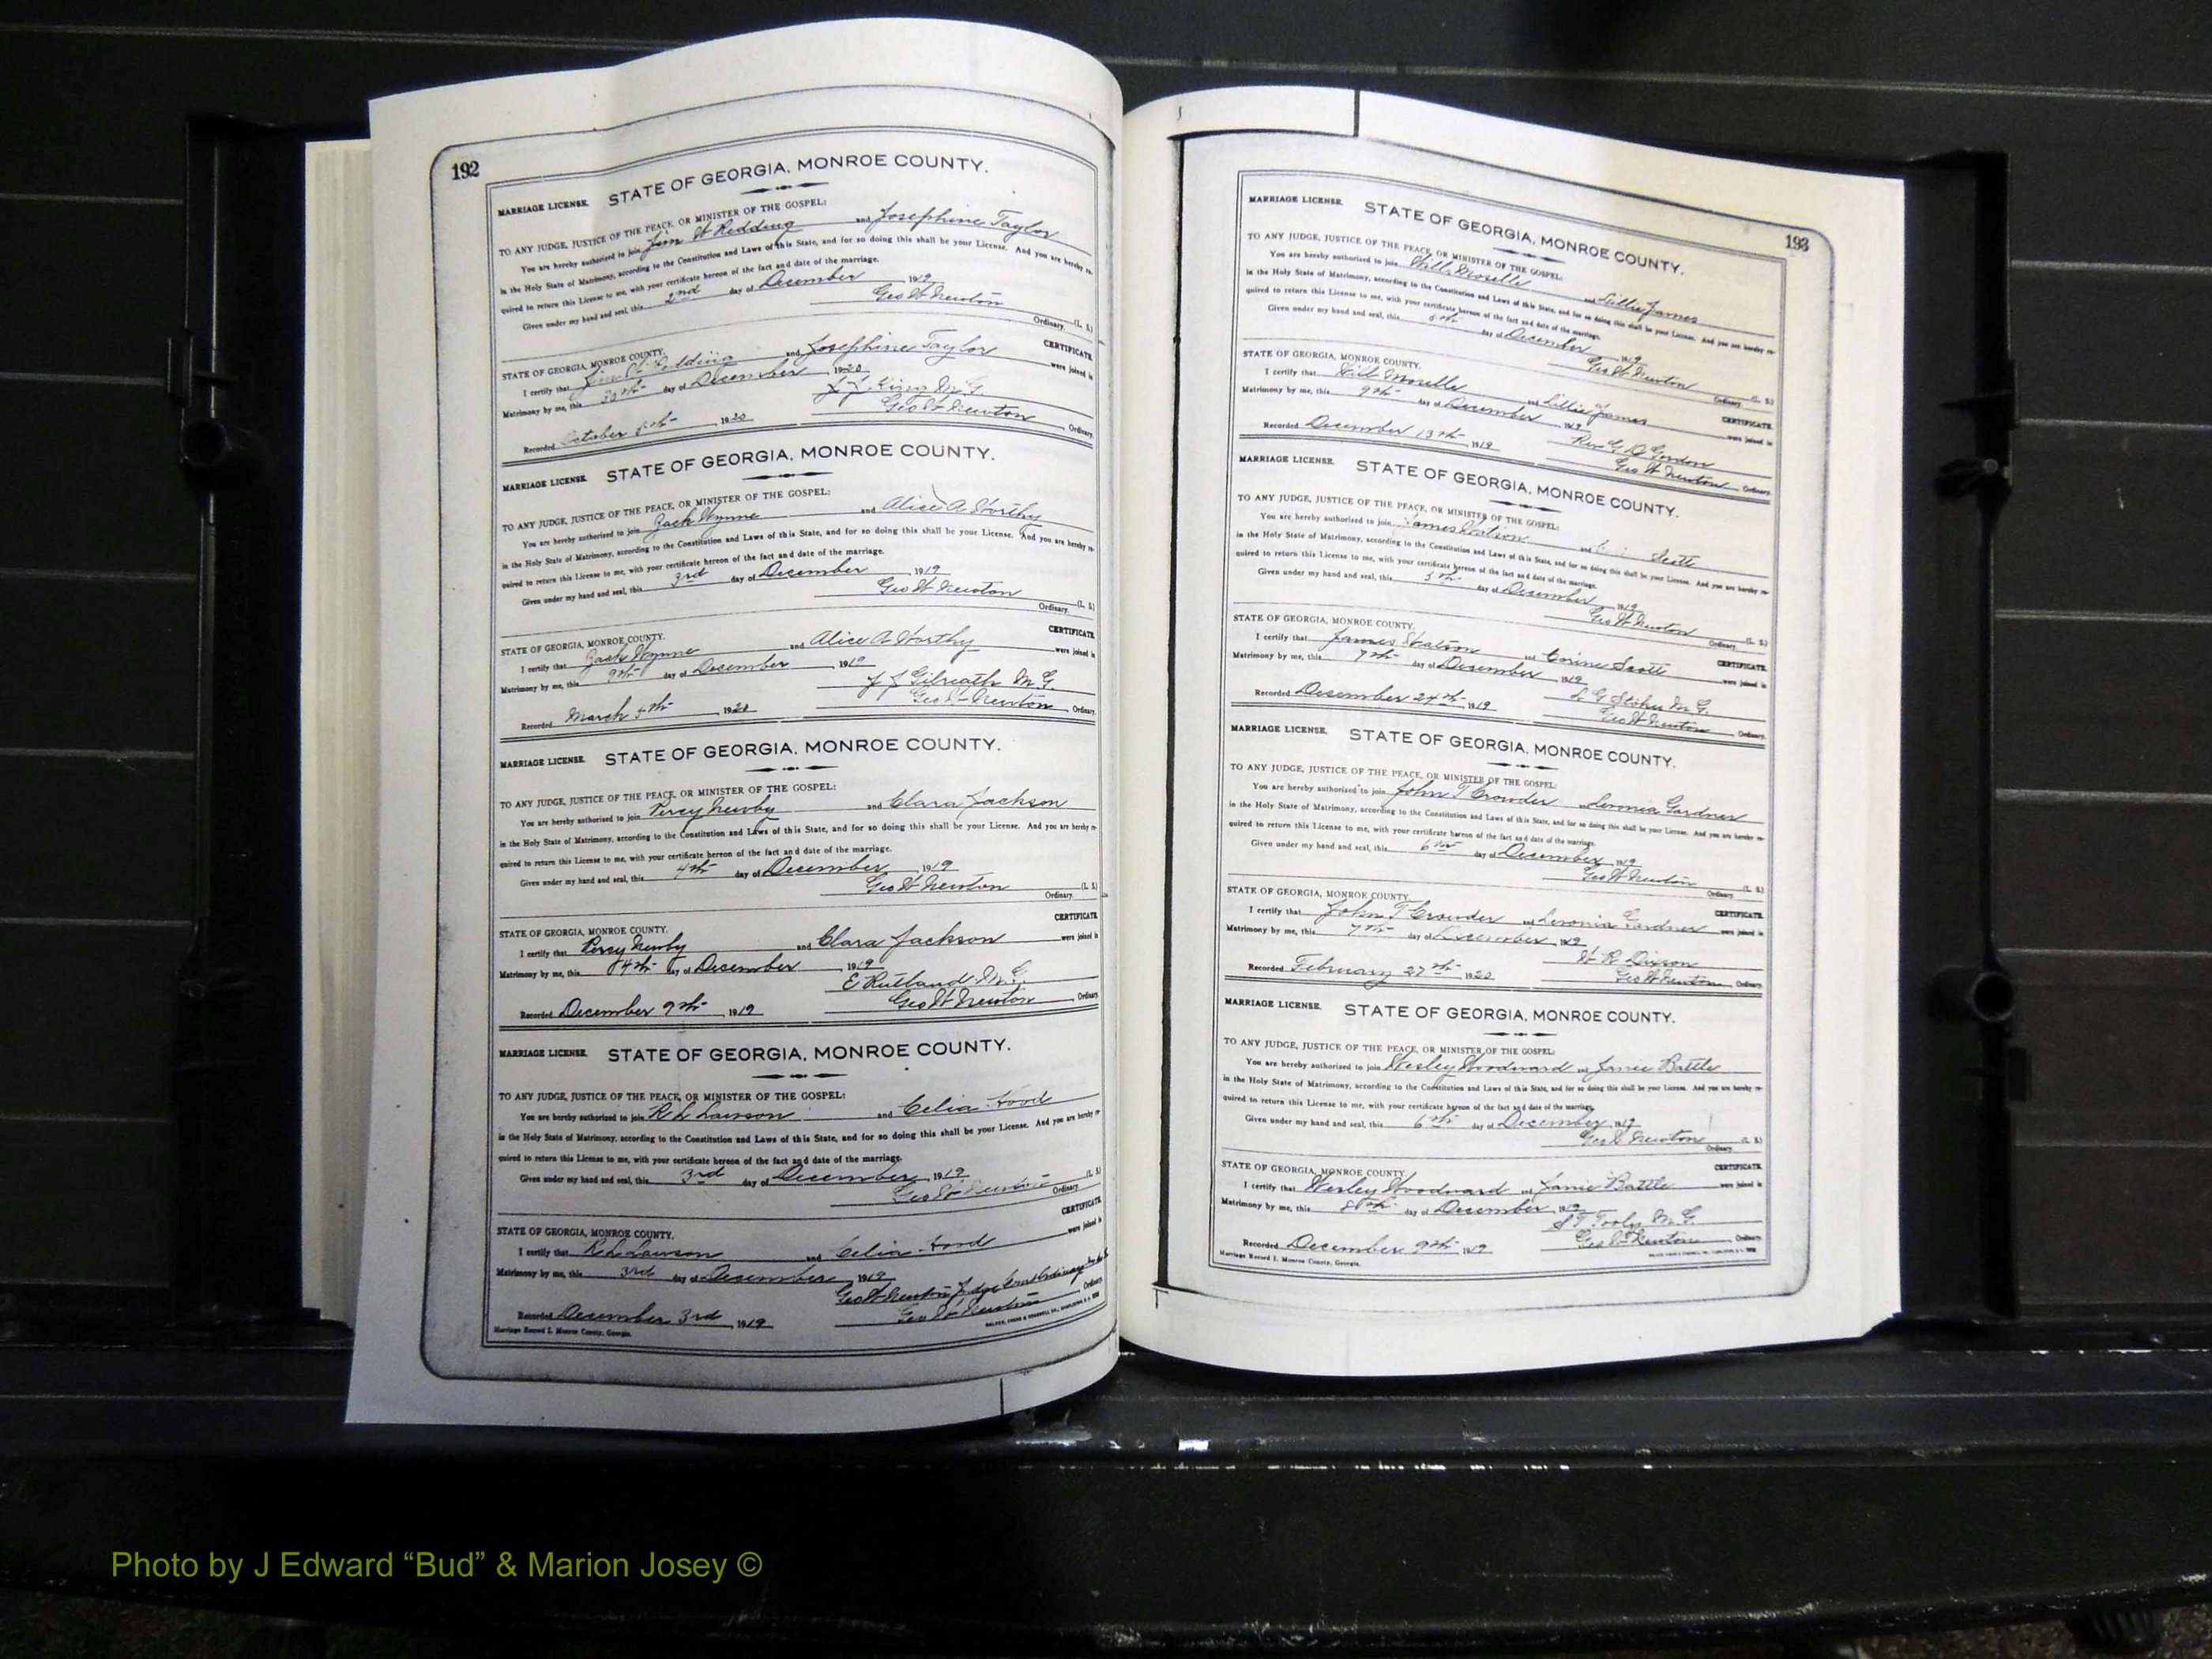 192
STATE OF GEORGIA, MONROE COUNTY.
MARRIAGE LICENSE.
TO ANY JUDGE, JUSTICE OF THE PEACE, OR MINISTER OF THE GOSPEL:
You are hereby authorized to join Jim W Redding and Josephine Taylor
in the Holy State of Matrimony, according to the Constitution and Laws of this State, and for so doing this shall be your License. And you are hereby re-
quired to return this License to me, with your certificate hereon of the fact and date of the marriage.
Given under my hand and seal, this 2nd day of December 1919
Geo W Newton (L. S.)
Ordinary.
STATE OF GEORGIA, MONROE COUNTY. CERTIFICATE
I certify that Jim W Redding and Josephine Taylor were joined in
Matrimony by me, this 30th day of December 1920
King M.G.
Recorded October 1920 Geo W Newton Ordinary.
MARRIAGE LICENSE. STATE OF GEORGIA, MONROE COUNTY.
TO ANY JUDGE, JUSTICE OF THE PEACE, OR MINISTER OF THE GOSPEL:
You are hereby authorized to join Zack Wynne and Alice A Worthy
in the Holy State of Matrimony, according to the Constitution and Laws of this State, and for so doing this shall be your License. And you are hereby re-
quired to return this License to me, with your certificate hereon of the fact and date of the marriage.
Given under my hand and seal, this 3rd day of December 1919
Geo W Newton (L. S.)
Ordinary.
STATE OF GEORGIA, MONROE COUNTY. CERTIFICATE
I certify that Zack Wynne and Alice A Worthy were joined in
Matrimony by me, this 9th day of December, 1919
J J Gilreath M.G.
Recorded March 5th 1920 Geo W Newton Ordinary.
MARRIAGE LICENSE. STATE OF GEORGIA, MONROE COUNTY.
TO ANY JUDGE, JUSTICE OF THE PEACE, OR MINISTER OF THE GOSPEL:
You are hereby authorized to join Percy Newby and Clara Jackson
in the Holy State of Matrimony, according to the Constitution and Laws of this State, and for so doing this shall be your License. And you are hereby re-
quired to return this License to me, with your certificate hereon of the fact and date of the marriage.
Given under my hand and seal, this 4th day of December 1919
Geo W Newton (L. S.)
Ordinary.
STATE OF GEORGIA, MONROE COUNTY. CERTIFICATE
I certify that Percy Newby and Clara Jackson were joined in
Matrimony by me, this 4th day of December 1919
E Rutland M.G.
Recorded December 9th 1919 Geo W Newton Ordinary.
MARRIAGE LICENSE. STATE OF GEORGIA, MONROE COUNTY.
TO ANY JUDGE, JUSTICE OF THE PEACE, OR MINISTER OF THE GOSPEL:
You are hereby authorized to join R L Lawson and Celia Hood
in the Holy State of Matrimony, according to the Constitution and Laws of this State, and for so doing this shall be your License. And you are hereby re-
quired to return this License to me, with your certificate hereon of the fact and date of the marriage.
Given under my hand and seal, this 3rd day of December 1919
Geo W Newton (L. S.)
Ordinary.
STATE OF GEORGIA, MONROE COUNTY. CERTIFICATE
I certify that R L Lawson and Celia Hood were joined in
Matrimony by me, this 3rd day of December 1919
Geo W Newton Judge Court Ordinary
Recorded December 3rd 1919 Geo W Newton Ordinary.
Marriage Record I. Monroe County, Georgia.
193
MARRIAGE LICENSE. STATE OF GEORGIA, MONROE COUNTY.
TO ANY JUDGE, JUSTICE OF THE PEACE, OR MINISTER OF THE GOSPEL:
You are hereby authorized to join Will and Lillie James
in the Holy State of Matrimony, according to the Constitution and Laws of this State, and for so doing this shall be your License. And you are hereby re-
quired to return this License to me, with your certificate hereon of the fact and date of the marriage.
Given under my hand and seal, this day of December 1919
Geo W Newton (L. S.)
Ordinary.
STATE OF GEORGIA, MONROE COUNTY. CERTIFICATE
I certify that Will and Lillie James were joined in
Matrimony by me, this 9th day of December 1919
Rev G O Gordon
Recorded December 13th 1919 Geo W Newton Ordinary.
MARRIAGE LICENSE. STATE OF GEORGIA, MONROE COUNTY.
TO ANY JUDGE, JUSTICE OF THE PEACE, OR MINISTER OF THE GOSPEL:
You are hereby authorized to join James Watson and Scott
in the Holy State of Matrimony, according to the Constitution and Laws of this State, and for so doing this shall be your License. And you are hereby re-
quired to return this License to me, with your certificate hereon of the fact and date of the marriage.
Given under my hand and seal, this 5th day of December 1919
Geo W Newton (L. S.)
Ordinary.
STATE OF GEORGIA, MONROE COUNTY. CERTIFICATE
I certify that James Watson and Corine Scott were joined in
Matrimony by me, this 7th day of December 1919
M.G.
Recorded December 24th 1919 Geo W Newton Ordinary.
MARRIAGE LICENSE. STATE OF GEORGIA, MONROE COUNTY.
TO ANY JUDGE, JUSTICE OF THE PEACE, OR MINISTER OF THE GOSPEL:
You are hereby authorized to join John T Crowder and Leronia Gardner
in the Holy State of Matrimony, according to the Constitution and Laws of this State, and for so doing this shall be your License. And you are hereby re-
quired to return this License to me, with your certificate hereon of the fact and date of the marriage.
Given under my hand and seal, this 6th day of December 1919
Geo W Newton (L. S.)
Ordinary.
STATE OF GEORGIA, MONROE COUNTY. CERTIFICATE
I certify that John T Crowder and Leronia Gardner were joined in
Matrimony by me, this 7th day of December 1919
W R Dixson
Recorded February 27th 1920 Geo W Newton Ordinary.
MARRIAGE LICENSE. STATE OF GEORGIA, MONROE COUNTY.
TO ANY JUDGE, JUSTICE OF THE PEACE, OR MINISTER OF THE GOSPEL:
You are hereby authorized to join Wesley Woodward and Janie Battle
in the Holy State of Matrimony, according to the Constitution and Laws of this State, and for so doing this shall be your License. And you are hereby re-
quired to return this License to me, with your certificate hereon of the fact and date of the marriage.
Given under my hand and seal, this 6th day of December 1919
Geo W Newton (L. S.)
Ordinary.
STATE OF GEORGIA, MONROE COUNTY. CERTIFICATE
I certify that Wesley Woodward and Janie Battle were joined in
Matrimony by me, this 8th day of December, 1919
S T Tooly M.G.
Recorded December 9th 1919 Geo W Newton Ordinary.
Marriage Record I. Monroe County, Georgia.
Photo by J Edward “Bud” & Marion Josey ©